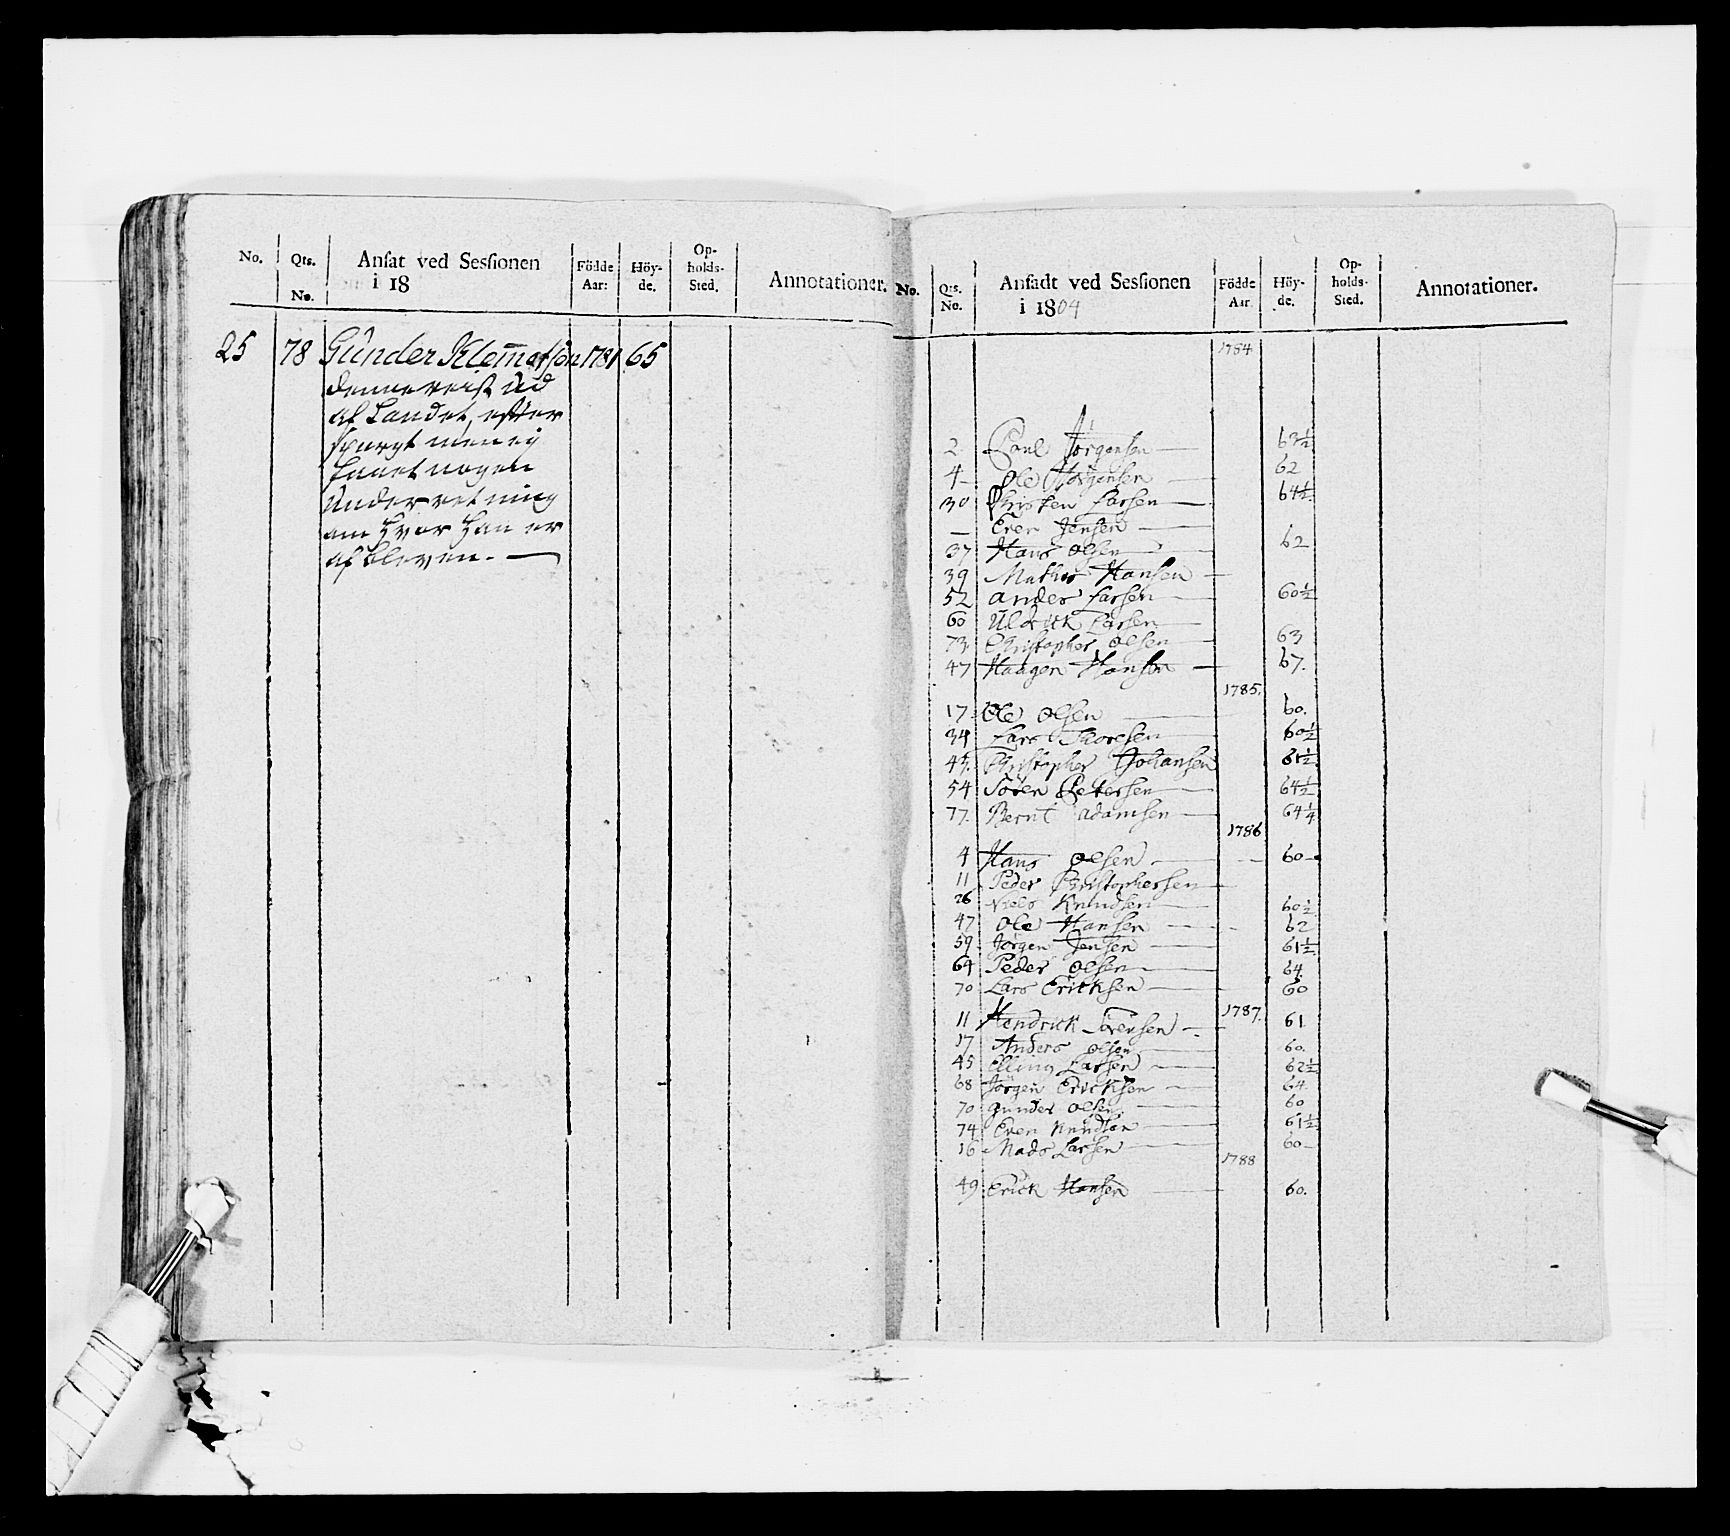 No. Qts. No. Ansat ved Sessionen i 18 Födde Aar: Höy-de. Op-holds-Sted. Annotationer.
25 78 Gunder Klem̅atsön 1781 65
denne reist ud
af Landet, efter
spurgt men ej
faaet nogen
Underretning
om hvor han er
afbleven. —
No. Qts. No. Ansadt ved Sessionen i 1804 Födde Aar. Höy-de. Op-holds-Sted. Annotationer.
1784
2 Poul Jörgensen 63½
4 Ole Jörgensen 62
30 Christen Larsen 64½
— Even Jensen
37 Hans Olsen 62
39 Mathis Hansen
52 Anders Larsen 60½
60 Uldrick Larsen
73 Christopher Olsen 63
47 Haagen Hansen 67.
1785.
17 Ole Olsen 60.
34 Lars Thoresen 60½
45. Christopher Johansen 61½
54 Sören Petersen 64½
77. Bernt Adamsen 64¼
1786
4 Hans Olsen 60
11 Peder Christophersen
26 Niels Knudsen 60½
47 Ole Hansen 62
59 Jörgen Jensen 61½
64 Peder Olsen 64
70 Lars Ericksen 60
1787.
11 Hendrick Sörensen 61
17 Anders Olsen 60.
45 Elling Larsen 62½
68 Jörgen Ericksen 64
70 Gunder Olsen 60
74 Even Knudsen 61½
16 Mads Larsen 60
1788
49 Erick Hansen 60.